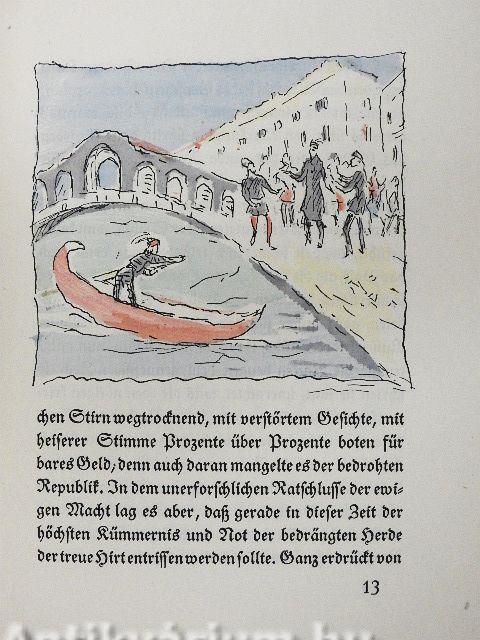 chen Stirn wegtrocknend, mit verstörtem Gesichte, mit
heiserer Stimme Prozente über Prozente boten für
bares Geld; denn auch daran mangelte es der bedrohten
Republik. In dem unerforschlichen Ratschlusse der ewi-
gen Macht lag es aber, daß gerade in dieser Zeit der
höchsten Kümmernis und Not der bedrängten Herde
der treue Hirt entrissen werden sollte. Ganz erdrückt von
13
Antikvárium.hu